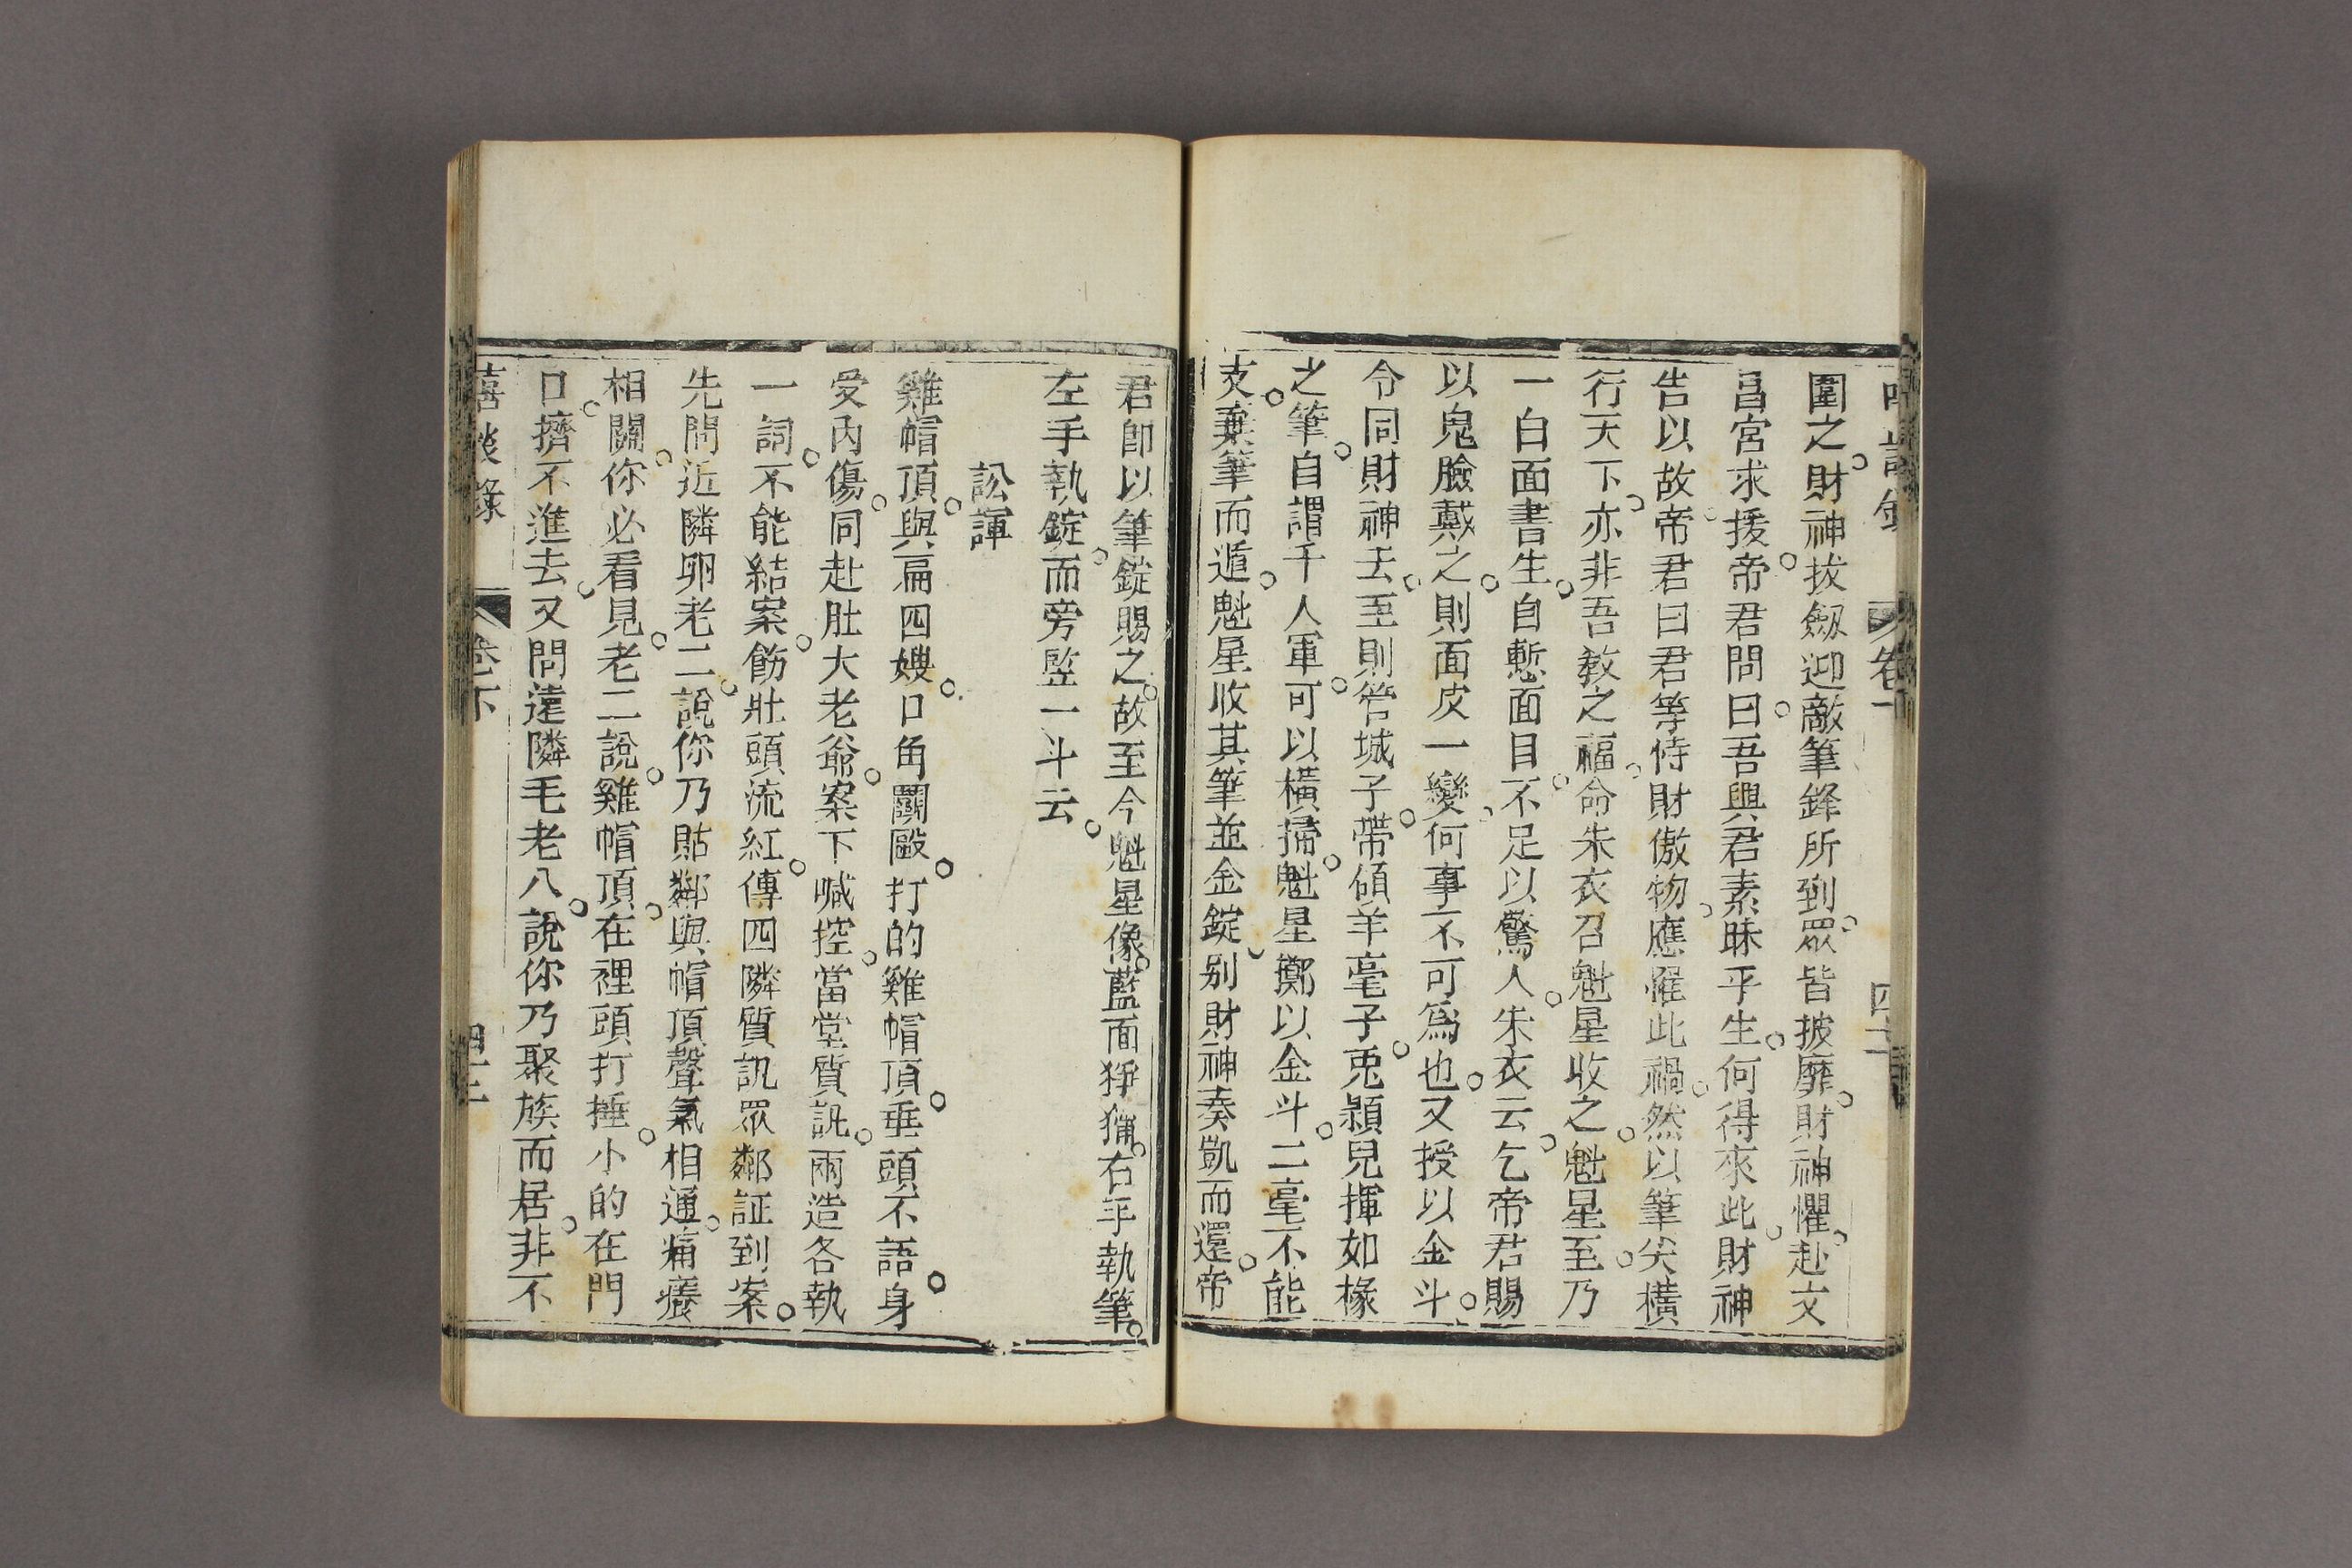 圍之財神拔劔迎敵筆鋒所到眾皆披靡財神懼赴文
昌宮求援帝君問曰吾與君素昧乎生何得來此財神
告以故帝君曰君等恃財傲物應罹此禍然以筆尖橫
行天下亦非吾教之福命朱衣召魁星收之魁星至乃
一白面書生自慙面目不足以驚人朱衣云乞帝君賜
以鬼臉戴之則面皮一變何事不可為也又授以金斗
令同財神去至則管城子帶領羊毫子兎潁兒揮如椽
之筆自謂千人軍可以橫掃魁星擲以金斗二毫不能
支棄筆而遁魁星收其筆並金錠别財神奏凱而還帝
君卽以筆錠賜之故至今魁星像藍面猙獰右手執筆
左手執錠而旁竪一斗云
訟諢
雞帽頂與扁四嫂口角鬭毆打的雞帽頂垂頭不語身
受內傷同赴肚大老爺案下喊控當堂質訊兩造各執
一詞不能結案飭壯頭流紅傳四隣質訊眾鄰証到案
先問近隣卵老二說你乃貼鄰與帽頂聲氣相通痛癢
相關你必看見老二說雞帽頂在裡頭打捶小的在門
口擠不進去又問遠隣毛老八說你乃聚族而居非不
嘻談錄 卷下 四十二